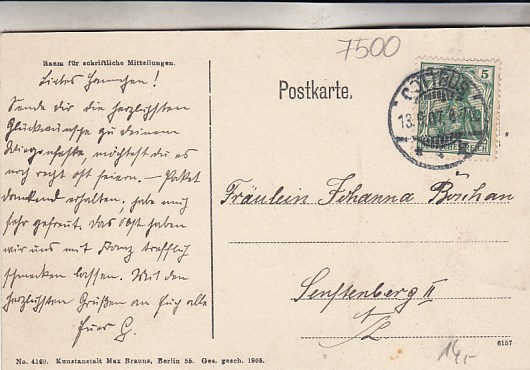 7500
Raum für schriftliche Mitteilungen.
Liebes Hannchen!
Sende Dir die herzlichsten
Glückwünsche zu deinem
Wiegenfeste, möchtest du es
noch recht oft feiern. — Paket
dankend erhalten, habe mich
sehr gefreut. Das Obst haben
wir uns mit Franz trefflich
schmecken lassen. Mit den
herzlichsten Grüßen an Euch alle
Euer G.
Postkarte.
COTTBUS
13.9.07.
5
DEUTSCHES REICH
Fräulein Johanna
Senftenberg II
N/L
6157
14,-
No. 4169. Kunstanstalt Max Brauns, Berlin 55. Ges. gesch. 1905.